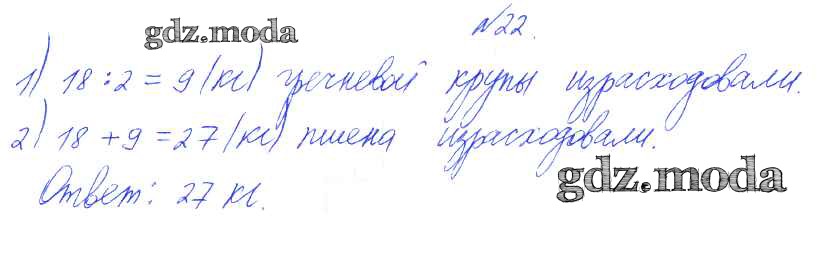 gdz.moda
№22.
1) 18 : 2 = 9 (кг) гречневой крупы израсходовали.
2) 18 + 9 = 27 (кг) пшена израсходовали.
Ответ: 27 кг.
gdz.moda